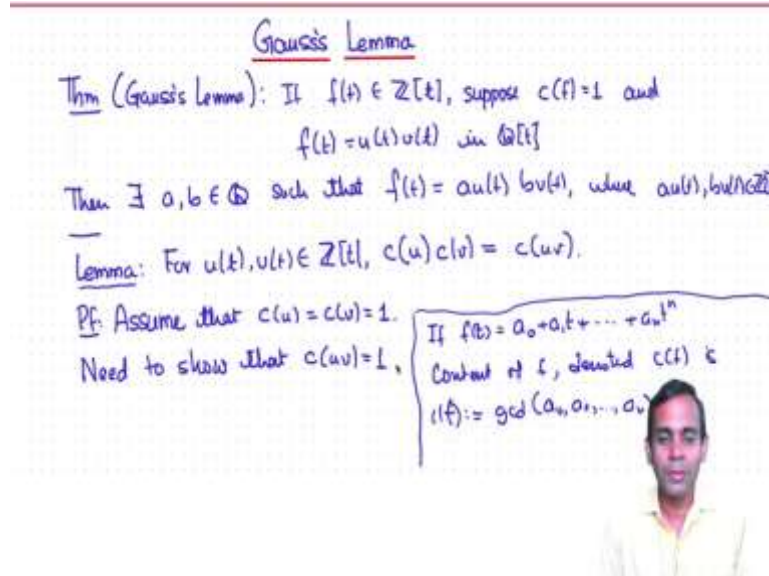 Gauss's Lemma
Thm (Gauss's Lemma): If f(t) ∈ ℤ[t], suppose c(f)=1 and
f(t) = u(t)v(t) in ℚ[t]
Then ∃ a,b ∈ ℚ such that f(t) = au(t) bv(t), where au(t), bv(t)∈ℤ[
Lemma: For u(t), v(t) ∈ ℤ[t], c(u)c(v) = c(uv).
Pf: Assume that c(u) = c(v) = 1.
Need to show that c(uv)=1.
If f(t) = a₀+a₁t+ ··· +aₙtⁿ
Content of f, denoted c(f) is
c(f) := gcd(a₀, a₁, ..., aₙ)